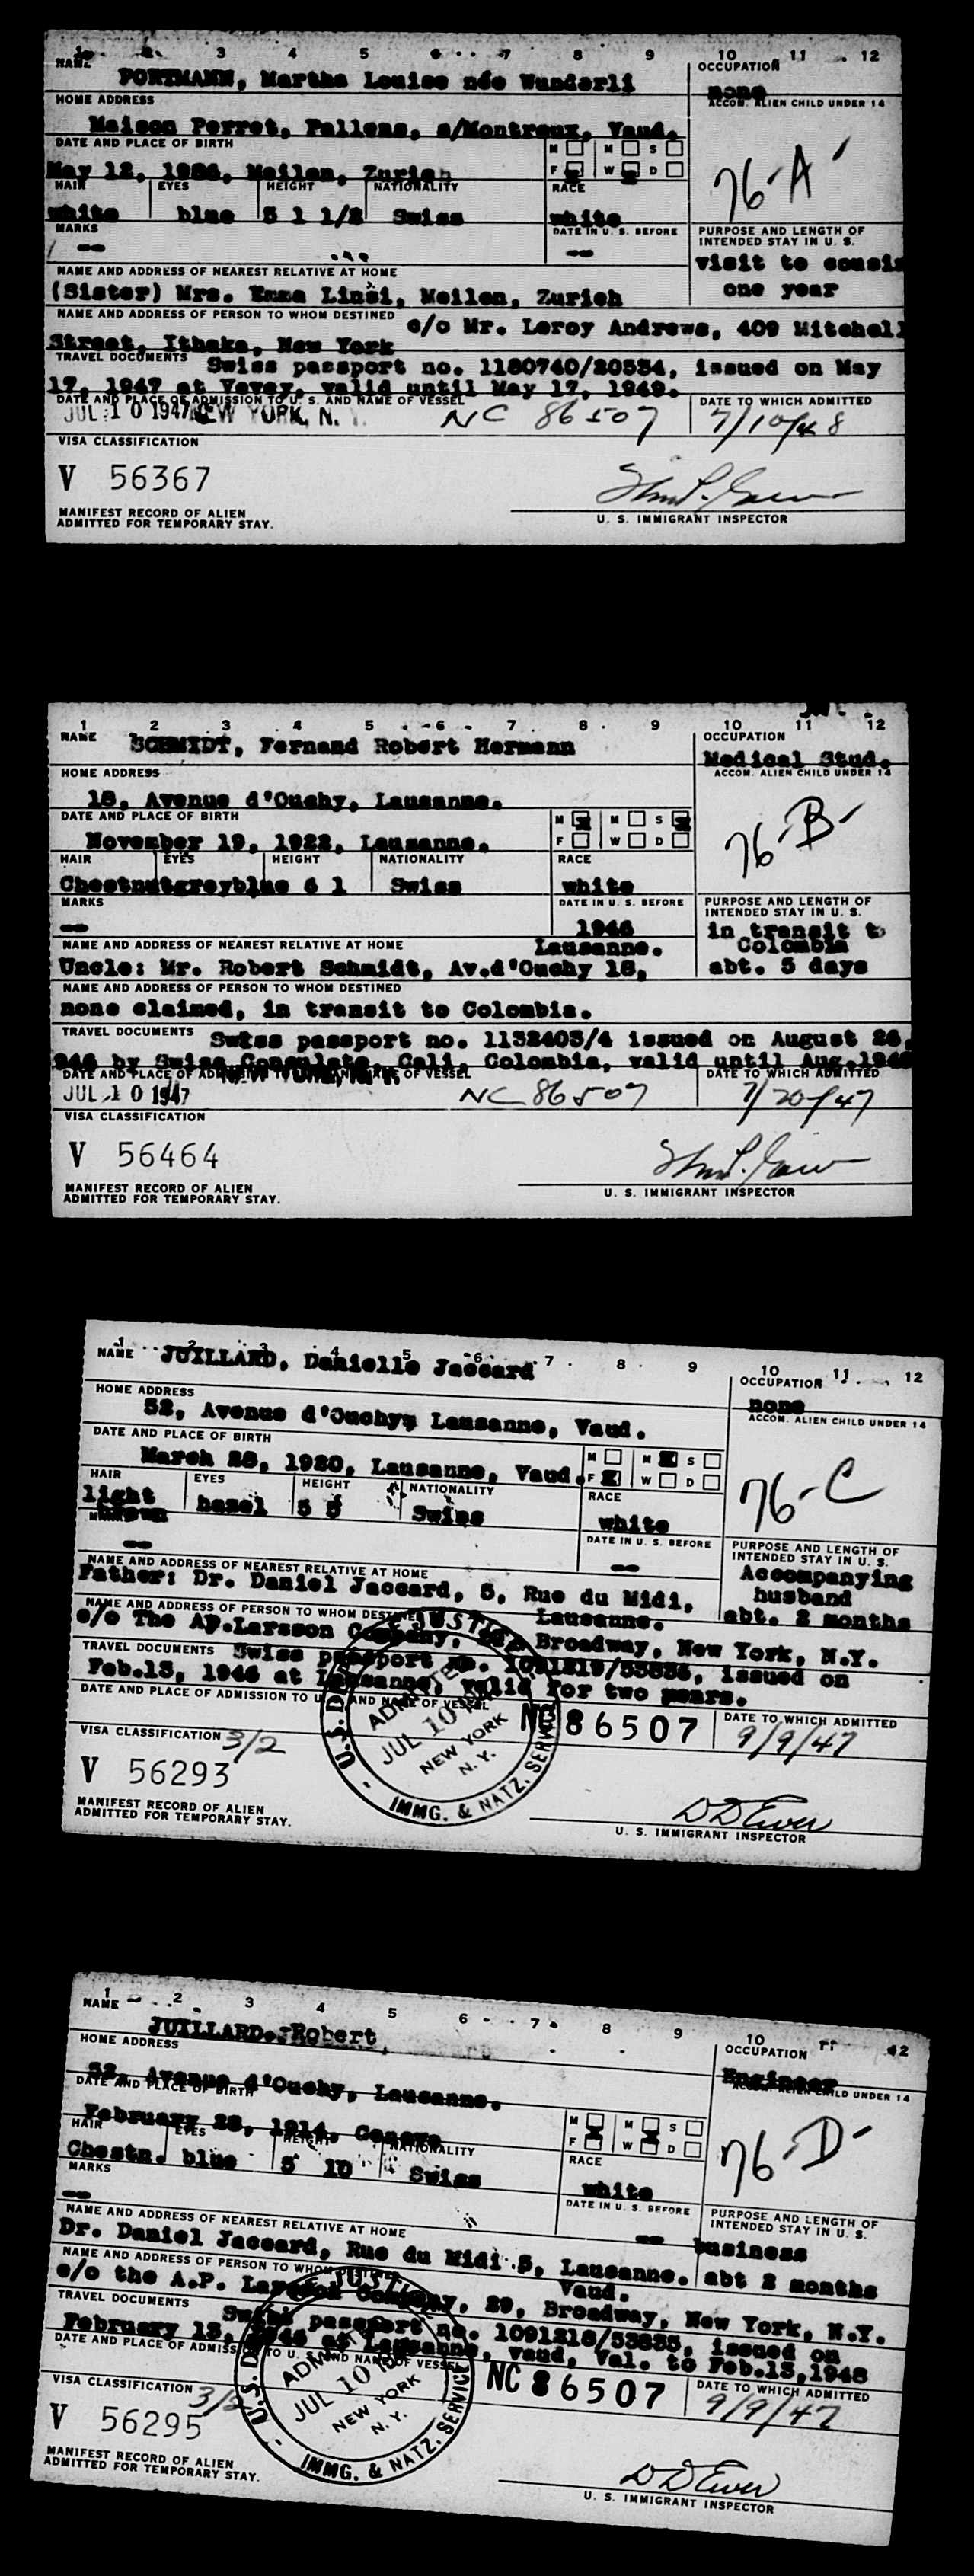 1 2 3 4 5 6 7 8 9 10 11 12
NAME
OCCUPATION
PORTMANN, Martha Louise née Wunderli
none
HOME ADDRESS
ACCOM. ALIEN CHILD UNDER 14
Maison Perret, Pallens, s/Montreux, Vaud.
DATE AND PLACE OF BIRTH
M M S
F W D
May 12, Meilen, Zurich
76-A
HAIR EYES HEIGHT NATIONALITY RACE
white blue 5 1 1/2 Swiss white
MARKS
DATE IN U. S. BEFORE
PURPOSE AND LENGTH OF
INTENDED STAY IN U. S.
-- --
visit to cousin
one year
NAME AND ADDRESS OF NEAREST RELATIVE AT HOME
(Sister) Mrs. Emma Linsi, Meilen, Zurich
NAME AND ADDRESS OF PERSON TO WHOM DESTINED
c/o Mr. Leroy Andrews, 409 Mitchell
Street, Ithaka, New York
TRAVEL DOCUMENTS Swiss passport no. 1180740/20534, issued on May
17, 1947 at Vevey, valid until May 17, 1949.
DATE AND PLACE OF ADMISSION TO U. S. AND NAME OF VESSEL
DATE TO WHICH ADMITTED
JUL 10 1947 NEW YORK, N. Y. NC 86507 7/10/48
VISA CLASSIFICATION
V 56367
MANIFEST RECORD OF ALIEN
ADMITTED FOR TEMPORARY STAY.
U. S. IMMIGRANT INSPECTOR
1 2 3 4 5 6 7 8 9 10 11 12
NAME
OCCUPATION
SCHMIDT, Fernand Robert Hermann
Medical Stud.
HOME ADDRESS
ACCOM. ALIEN CHILD UNDER 14
18, Avenue d'Ouchy, Lausanne.
DATE AND PLACE OF BIRTH
M M S
F W D
November 19, 1922, Lausanne.
76-B-
HAIR EYES HEIGHT NATIONALITY RACE
Chestnut greyblue 6 1 Swiss white
MARKS
DATE IN U. S. BEFORE
PURPOSE AND LENGTH OF
INTENDED STAY IN U. S.
-- 1946
in transit to
Colombia
abt. 5 days
NAME AND ADDRESS OF NEAREST RELATIVE AT HOME
Lausanne.
Uncle: Mr. Robert Schmidt, Av.d'Ouchy 18,
NAME AND ADDRESS OF PERSON TO WHOM DESTINED
none claimed, in transit to Colombia.
TRAVEL DOCUMENTS Swiss passport no. 1132403/4 issued on August 26,
946 by Swiss Consulate, Cali, Colombia, valid until Aug.1948
DATE AND PLACE OF ADMISSION TO U. S. AND NAME OF VESSEL
DATE TO WHICH ADMITTED
JUL 10 1947 NC 86507 7/20/47
VISA CLASSIFICATION
V 56464
MANIFEST RECORD OF ALIEN
ADMITTED FOR TEMPORARY STAY.
U. S. IMMIGRANT INSPECTOR
1 2 3 4 5 6 7 8 9 10 11 12
NAME JUILLARD, Danielle Jaccard
OCCUPATION
none
HOME ADDRESS
ACCOM. ALIEN CHILD UNDER 14
52, Avenue d'Ouchy, Lausanne, Vaud.
DATE AND PLACE OF BIRTH
M M S
F W D
March 28, 1920, Lausanne, Vaud.
76-C
HAIR EYES HEIGHT NATIONALITY RACE
light brown hazel 5 5 Swiss white
MARKS
DATE IN U. S. BEFORE
PURPOSE AND LENGTH OF
INTENDED STAY IN U. S.
-- --
Accompanying
husband
abt. 2 months
NAME AND ADDRESS OF NEAREST RELATIVE AT HOME
Father: Dr. Daniel Jaccard, 5, Rue du Midi,
Lausanne.
NAME AND ADDRESS OF PERSON TO WHOM DESTINED
c/o The Ap.Larsson Company, Broadway, New York, N.Y.
TRAVEL DOCUMENTS Swiss passport no. 1091219/53836, issued on
Feb.13, 1946 at Lausanne, valid for two years.
DATE AND PLACE OF ADMISSION TO U. S. AND NAME OF VESSEL
DATE TO WHICH ADMITTED
NC 86507 9/9/47
U.S. DEPT. OF JUSTICE
ADMITTED
JUL 10
NEW YORK
N. Y.
IMMG. & NATZ. SERVICE
VISA CLASSIFICATION 3/2
V 56293
MANIFEST RECORD OF ALIEN
ADMITTED FOR TEMPORARY STAY.
DD Ewer
U. S. IMMIGRANT INSPECTOR
1 2 3 4 5 6 7 8 9 10 11 12
NAME
OCCUPATION
JUILLARD, Robert
Engineer
HOME ADDRESS
ACCOM. ALIEN CHILD UNDER 14
52, Avenue d'Ouchy, Lausanne.
DATE AND PLACE OF BIRTH
M M S
F W D
February 28, 1914, Geneva
76-D-
HAIR EYES HEIGHT NATIONALITY RACE
Chestn. blue 5 10 Swiss white
MARKS
DATE IN U. S. BEFORE
PURPOSE AND LENGTH OF
INTENDED STAY IN U. S.
-- --
business
abt 2 months
NAME AND ADDRESS OF NEAREST RELATIVE AT HOME
Dr. Daniel Jaccard, Rue du Midi 5, Lausanne.
Vaud.
NAME AND ADDRESS OF PERSON TO WHOM DESTINED
c/o the A.P. Larsson Company, 29, Broadway, New York, N.Y.
TRAVEL DOCUMENTS Swiss passport no. 1091218/53835, issued on
February 13, 1946 at Lausanne, Vaud, Val. to Feb.13,1948
DATE AND PLACE OF ADMISSION TO U. S. AND NAME OF VESSEL
DATE TO WHICH ADMITTED
NC 86507 9/9/47
U.S. DEPT. OF JUSTICE
ADMITTED
JUL 10
NEW YORK
N. Y.
IMMG. & NATZ. SERVICE
VISA CLASSIFICATION 3/2
V 56295
MANIFEST RECORD OF ALIEN
ADMITTED FOR TEMPORARY STAY.
DD Ewer
U. S. IMMIGRANT INSPECTOR